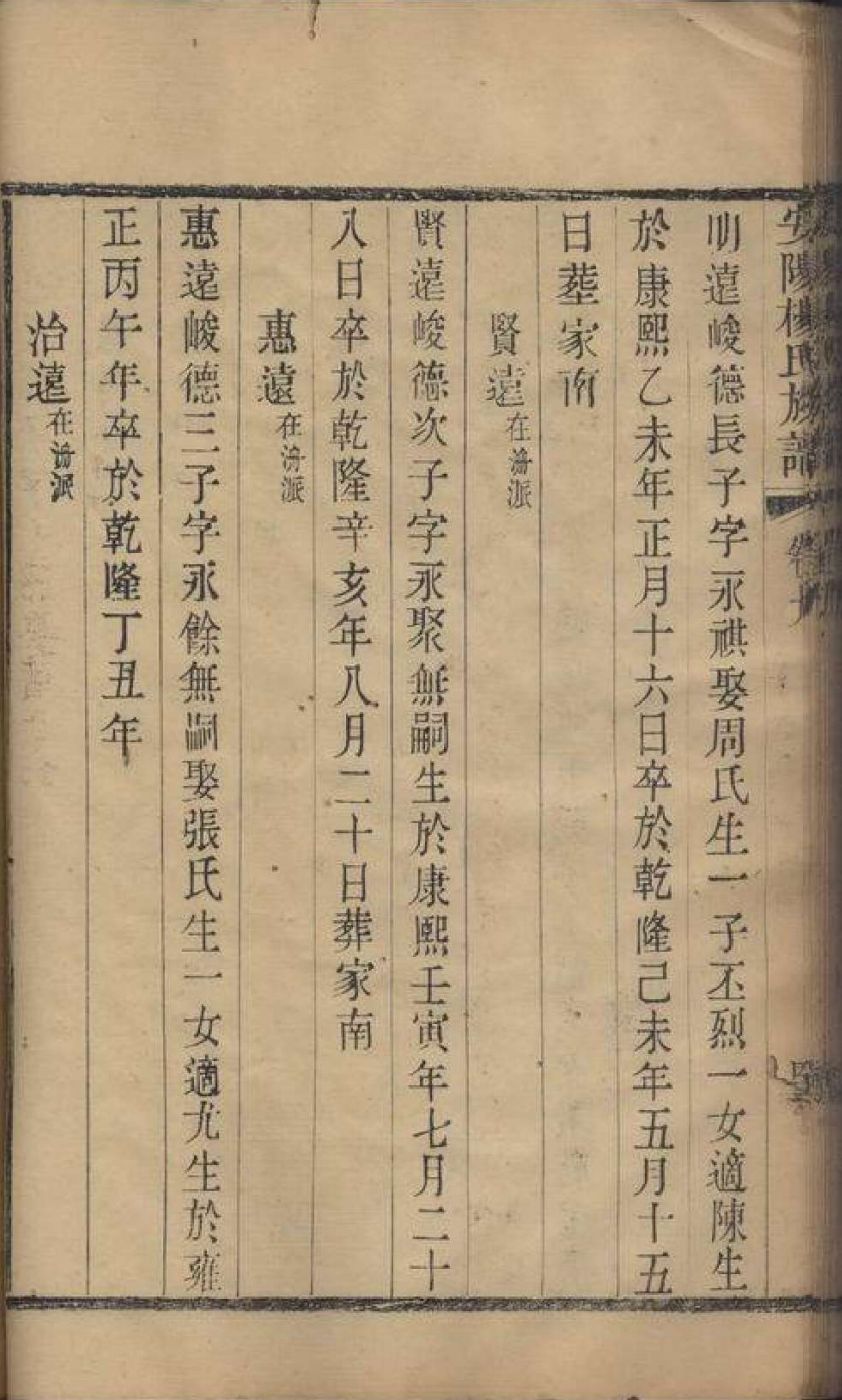 安陽楊氏族譜
明遠峻德長子字永祺娶周氏生一子丕烈一女適陳生
於康熙乙未年正月十六日卒於乾隆己未年五月十五
日塟家南
賢遠在滂派
賢遠峻德次子字永聚無嗣生於康熙壬寅年七月二十
八日卒於乾隆辛亥年八月二十日葬家南
惠遠在滂派
惠遠峻德三子字永餘無嗣娶張氏生一女適尤生於雍
正丙午年卒於乾隆丁丑年
治遠在滂派